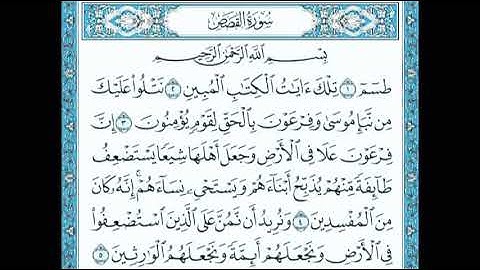 سُورَةُ القَصَصِ
بِسْمِ اللَّهِ الرَّحْمَٰنِ الرَّحِيمِ
طسٓمٓ ١ تِلْكَ ءَايَٰتُ الْكِتَٰبِ الْمُبِينِ ٢ نَتْلُوا۟ عَلَيْكَ
مِن نَّبَإِ مُوسَىٰ وَفِرْعَوْنَ بِالْحَقِّ لِقَوْمٍ يُؤْمِنُونَ ٣ إِنَّ
فِرْعَوْنَ عَلَا فِي الْأَرْضِ وَجَعَلَ أَهْلَهَا شِيَعًا يَسْتَضْعِفُ
طَآئِفَةً مِّنْهُمْ يُذَبِّحُ أَبْنَآءَهُمْ وَيَسْتَحْىِۦ نِسَآءَهُمْ ۚ إِنَّهُۥ كَانَ
مِنَ الْمُفْسِدِينَ ٤ وَنُرِيدُ أَن نَّمُنَّ عَلَى الَّذِينَ اسْتُضْعِفُوا۟
فِي الْأَرْضِ وَنَجْعَلَهُمْ أَئِمَّةً وَنَجْعَلَهُمُ الْوَٰرِثِينَ ٥